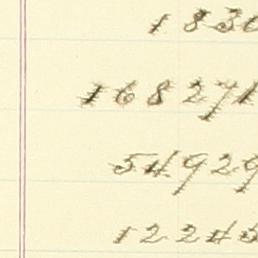 1 8 3 0
1 6 8 2 7 1
5 4 9 2 9
1 2 2 4 5